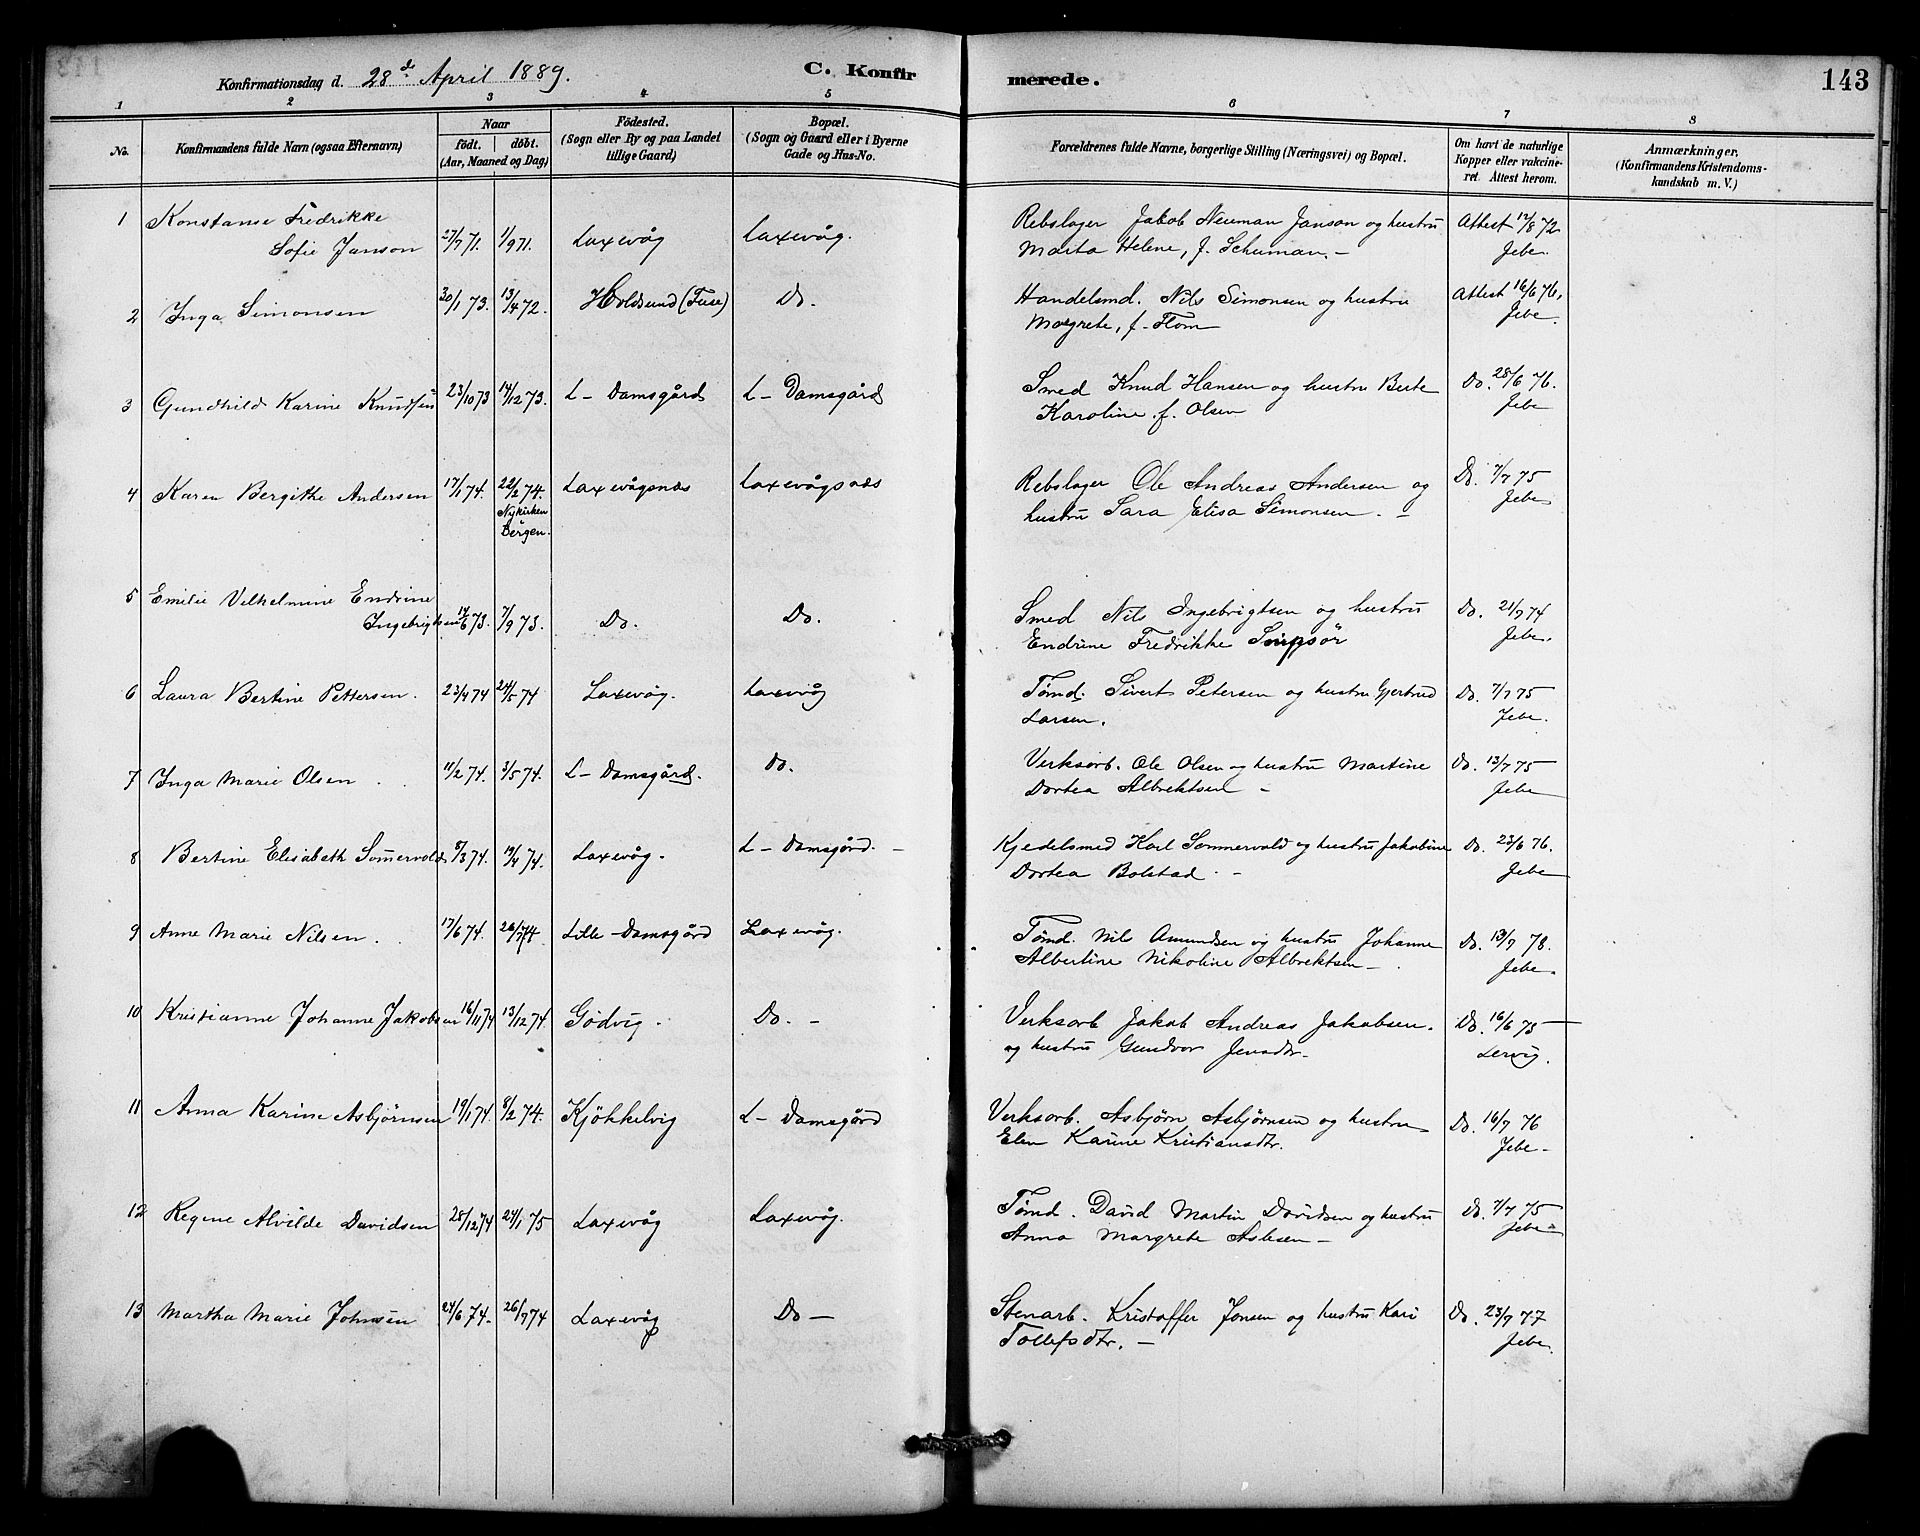 Konfirmationsdag d. 28de April 1889. C. Konfirmerede. 143
1 2 3 4 5 6 7 8
No. Konfirmandens fulde Navn (ogsaa Efternavn) Naar født. døbt. (Aar, Maaned og Dag) Fødested. (Sogn eller By og paa Landet tillige Gaard) Bopæl. (Sogn og Gaard eller i Byerne Gade og Hus-No. Forældrenes fulde Navne, borgerlige Stilling (Næringsvei) og Bopæl. Om havt de naturlige Kopper eller vakcineret. Attest herom. Anmærkninger, (Konfirmandens Kristendomskundskab m. V.)
1 Konstanse Fredrikke Rebslager Jakob Neuman Janson og hustru Attest 12/8 72
Sofie Janson 27/7 71. 1/9 71. Laxevåg Laxevåg. Marta Helene, f. Schuman. – Jebe.
2 Inga Simonsen 30/1 73. 13/4 72. Holdsund (Fuse) Do. Handelsmd. Nils Simonsen og hustru Attest 16/6 76,
Margrete, f. Flom Jebe.
3 Gundhild Karine Knudsen 23/10 73 14/12 73. L – Damsgård L – Damsgård Smed Knud Hansen og hustru Berte Do. 28/6 76.
Karoline f. Olsen Jebe
4 Karen Bergithe Andersen 17/1 74. 22/2 74. Laxevågsnæs Laxevågsnæs Rebslager Ole Andreas Andersen og Do. 7/7 75
Nykirken Bergen. hustru Sara Elisa Simonsen. – Jebe
5 Emilie Vilhelmine Endrine Smed Nils Ingebrigtsen og hustru Do. 21/7 74
Ingebrigtsen 14/6 73. 7/9 73. Do. Do. Endrine Fredrikke Jebe.
6 Laura Bertine Pettersen. 23/4 74 24/5 74 Laxevåg. Laxevåg Tømd. Sivert Petersen og hustru Gjertrud Do. 7/7 75
Larsen. Jebe.
7 Inga Marie Olsen 11/2 74. 3/5 74. L – Damsgård. Do. Verksarb. Ole Olsen og hustru Martine Do. 13/7 75
Dortea Albrektsen – Jebe
8 Bertine Elisabeth Somervold 8/3 74. 19/4 74. Laxevåg. L – Damsgård. – Kjedelsmed Karl Sommervald og hustru Jakobine Do. 23/6 76.
Dortea Bolstad. – Jebe
9 Anne Marie Nilsen. 17/6 74. 26/7 74 Lille–Damsgård Laxevåg. Tømd. Nils Amundsen og hustru Johanne Do. 13/7 78.
Albertine Nikoline Albrektsen – Jebe.
10 Kristianne Johanne Jakobsen 16/11 74 13/12 74. Gødvig. Do. – Verksarb Jakob Andreas Jakobsen. Do. 16/6 75
og hustru Gundvor Jensdtr. Lervig.
11 Anna Karine Asbjørnsen 19/1 74. 8/2 74. Kjøkkelvig L – Damsgård Verksarb. Asbjørn Asbjørnsen og hustru Do. 16/7 76
Elen Karine Kristiansdtr. Jebe –
12 Regine Alvilde Davidsen 28/12 74 24/1 75 Laxevåg Laxevåg. Tømd. David Martin Davidsen og hustru Do. 7/7 75
Anna Margrete Aslesen – Jebe
13 Martha Marie Johnsen 24/6 74. 26/7 74 Laxevåg Do – Stenarb. Kristoffer Jonsen og hustru Kari Do. 23/7 77
Tollefsdtr. – Jebe.